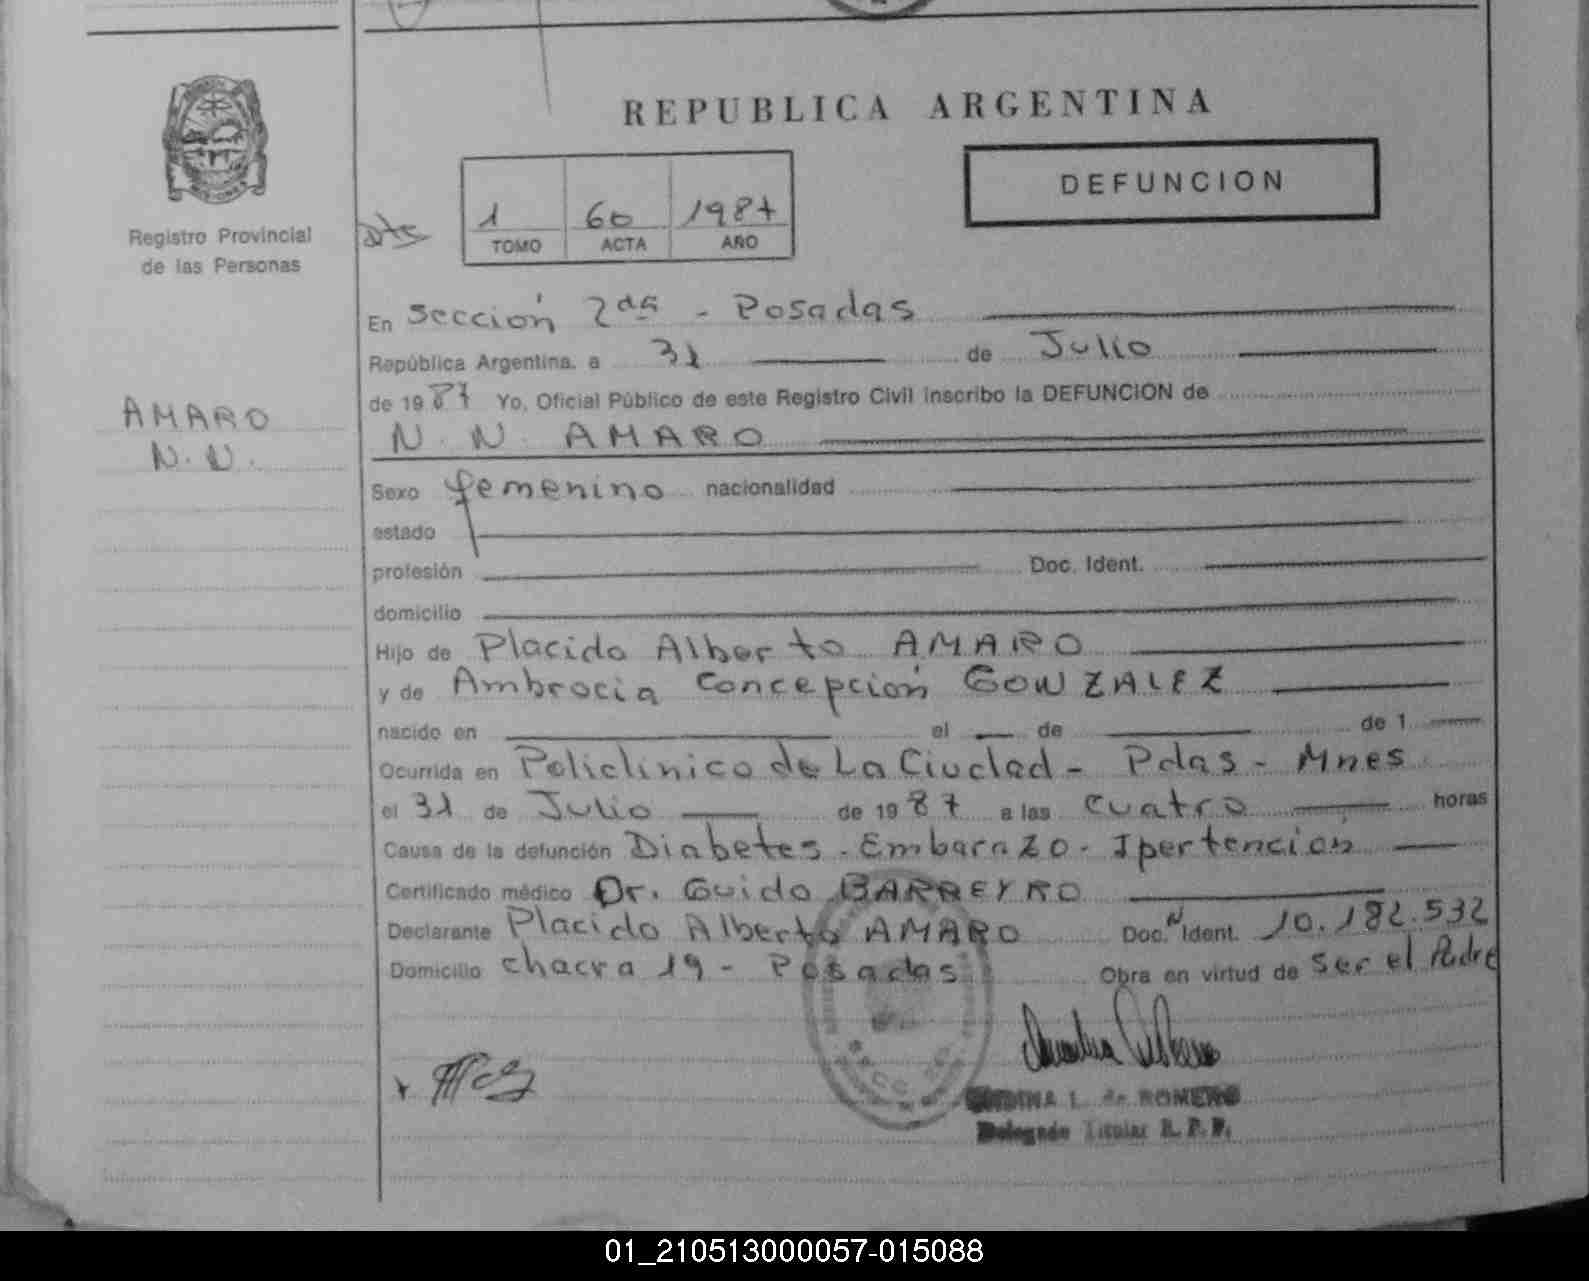 REPUBLICA ARGENTINA
DEFUNCION
1 60 1987
TOMO ACTA AÑO
Registro Provincial
de las Personas
AMARO
N. N.
En Sección 2da - Posadas
República Argentina, a 31 de Julio
de 1987 Yo, Oficial Público de este Registro Civil inscribo la DEFUNCION de
N. N. AMARO
Sexo femenino nacionalidad
estado
profesión Doc. Ident.
domicilio
Hijo de Placido Alberto AMARO
y de Ambrocia Concepción GONZALEZ
nacido en el de de 1
Ocurrida en Policlínico de La Ciudad - Pdas - Mnes
el 31 de Julio de 1987 a las cuatro horas
Causa de la defunción Diabetes - Embarazo - Ipertención
Certificado médico Dr. Guido BARREYRO
Declarante Placido Alberto AMARO Doc. N Ident. 10.182.532
Domicilio chacra 19 - Posadas Obra en virtud de Ser el Padre
L. de ROMERO
Delegado Titular R. P. P.
01_210513000057-015088